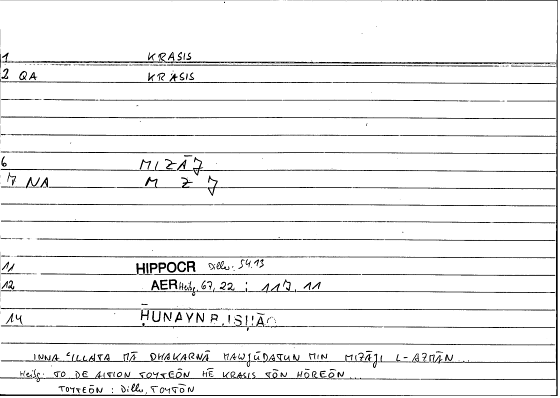 1 KRASIS
2 QA KRASIS
6 MIZĀJ
7 NA M Z J
11 HIPPOCR Diller 54.13
12 AER Heibg. 67, 22 ; 117, 11
14 ḤUNAYN B. ISḤĀQ
INNA ʿILLATA MĀ DHAKARNĀ MAWJŪDATUN MIN MIZĀJI L-AZMĀN...
Heibg. TO DE AITION TOYTEŌN HĒ KRASIS TŌN HŌREŌN...
TOYTEŌN : Diller, TOYTŌN